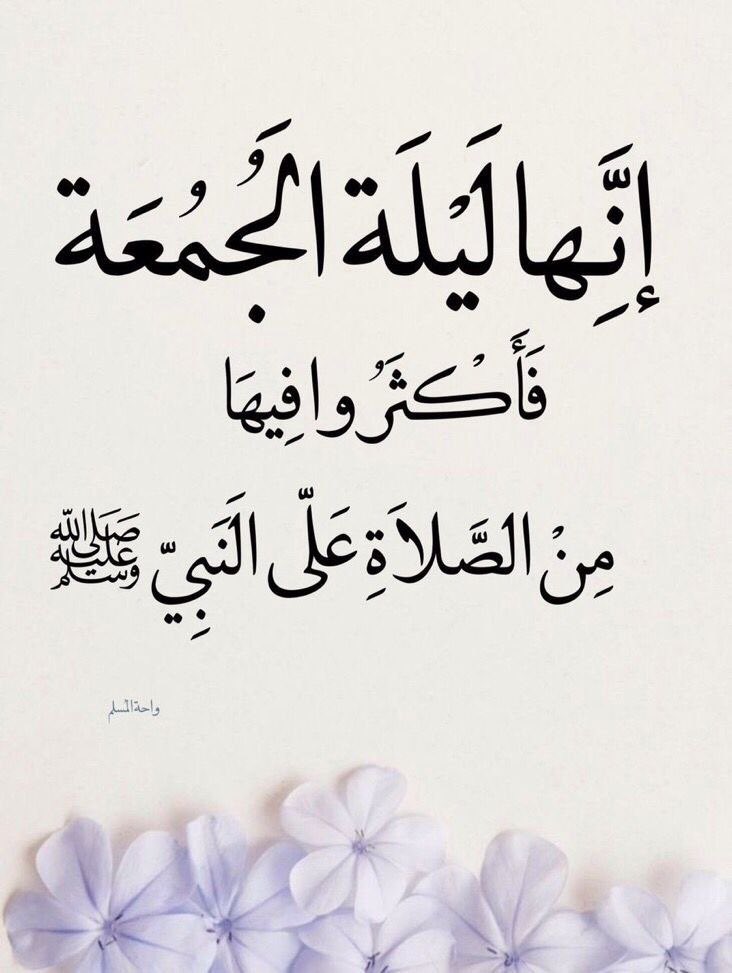 إِنَّها لَيْلَة الجُمُعَة
فَأَكْثَرُوا فِيهَا
مِنْ الصَّلَاةِ عَلَى النَبِيّ ﷺ
واحة المسلم